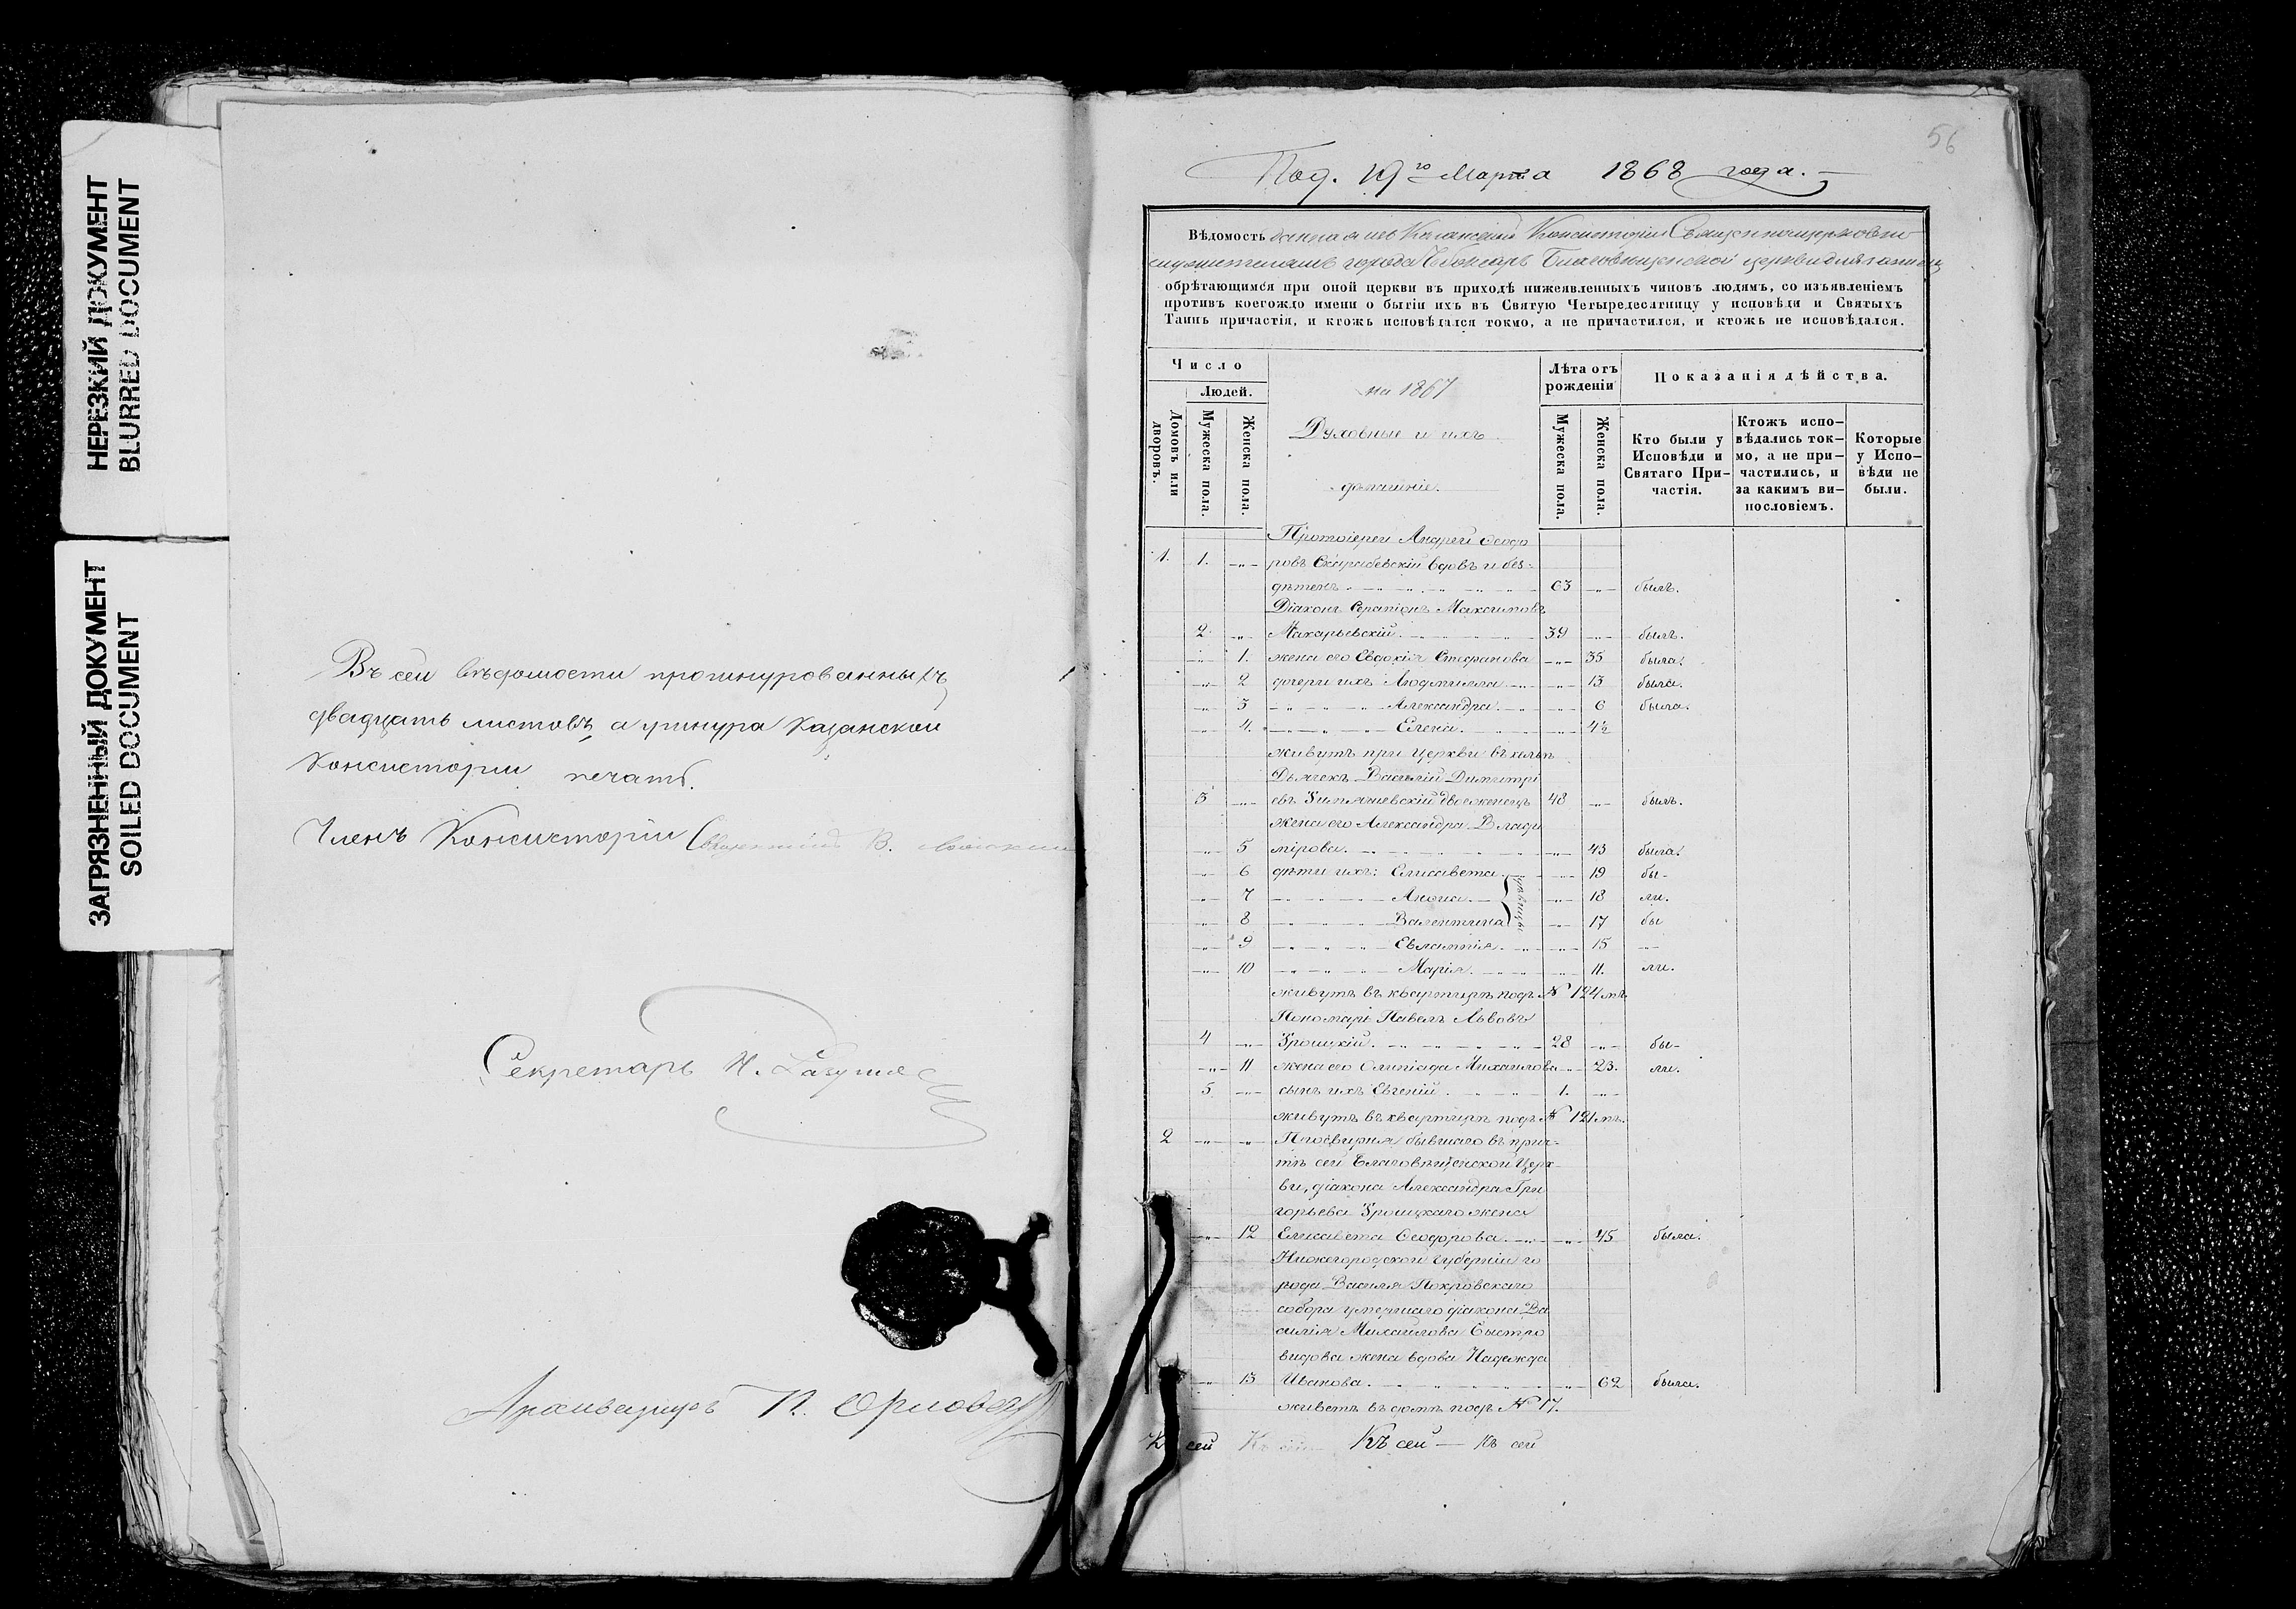 НЕРЕЗКИЙ ДОКУМЕНТ
BLURRED DOCUMENT
ЗАГРЯЗНЕННЫЙ ДОКУМЕНТ
SOILED DOCUMENT
Въ сей вѣдомости прошнурованныхъ
двадцать листовъ, а у шнура Казанской
Консисторіи печать.
Членъ Консисторіи Священникъ В.
Секретарь И.
Архиваріусъ П. Орловъ
56
Под. 19го Марта 1868 года.
Вѣдомость данная изъ Казанской Консисторіи Священноцерковно
служителямъ города Чебоксаръ Благовѣщенской церкви для записи
обрѣтающимся при оной церкви въ приходѣ нижеявленныхъ чиновъ людямъ, со изъявленіемъ
противъ коегождо имени о бытіи ихъ въ Святую Четыредесятницу у исповѣди и Святыхъ
Таинъ причастія, и ктожъ исповѣдался токмо, а не причастился, и ктожъ не исповѣдался.
Число
Людей.
Домовъ или дворовъ.
Мужеска пола.
Женска пола.
на 1867
Духовные и ихъ
домашніе.
Лѣта отъ рожденіи
Мужеска пола.
Женска пола.
Показанія дѣйства.
Кто были у Исповѣди и Святаго При-частія.
Ктожъ испо-вѣдались ток-мо, а не при-частились, и за какимъ ви-нословіемъ.
Которые у Испо-вѣди не были.
Протоіерей Андрей Ѳеодо
1. 1. -"- ровъ вдовъ и без-
дѣтенъ. 63 -"- былъ.
Діаконъ Серапіонъ Максимовъ
2 -"- Макарьевскій. 39 -"- былъ.
-"- 1. жена его Евдокія Стефанова -"- 35 была.
-"- 2 дочери ихъ Людмилла -"- 13 была.
-"- 3 Александра. -"- 6 была.
-"- 4. Елена. -"- 4½
живутъ при Церкви въ кельѣ
Дьячекъ Василій Димитрі
3 -"- евъ двоеженецъ 48 -"- былъ.
жена его Александра Влади
-"- 5 мірова. -"- 43 была.
-"- 6 дѣти ихъ: Елисавета. -"- 19 бы-
-"- 7 Анна. -"- 18 ли.
-"- 8 Валентина -"- 17 бы
дѣвицы
-"- 9 Евлампія. -"- 15 -"-
-"- 10 Марія. -"- 11. ли.
живутъ въ квартирѣ подъ № 124мъ
Пономарь Павелъ Львовъ
4 -"- Троицкій. 28 -"- бы-
-"- 11 жена его Олимпіада Михаилова -"- 23. ли.
5 -"- сынъ ихъ Евгеній. 1. -"-
живутъ въ квартирѣ подъ № 121мъ.
2 -"- -"- Просвирня бывшаго въ прич-
тѣ сей Благовѣщенской Церк-
ви, діакона Александра Гри
горьева Троицкаго жена
-"- 12 Елисавета Ѳеодорова. -"- 45 была.
Нижегородской Губерніи го
рода Василя Покровскаго
собора умершаго діакона Ва
силія Михаилова Быстро
видова жена вдова Надежда
-"- 13 Иванова. -"- 62 была.
живетъ въ домѣ подъ № 17.
Къ сей Къ сей Къ сей — Къ сей